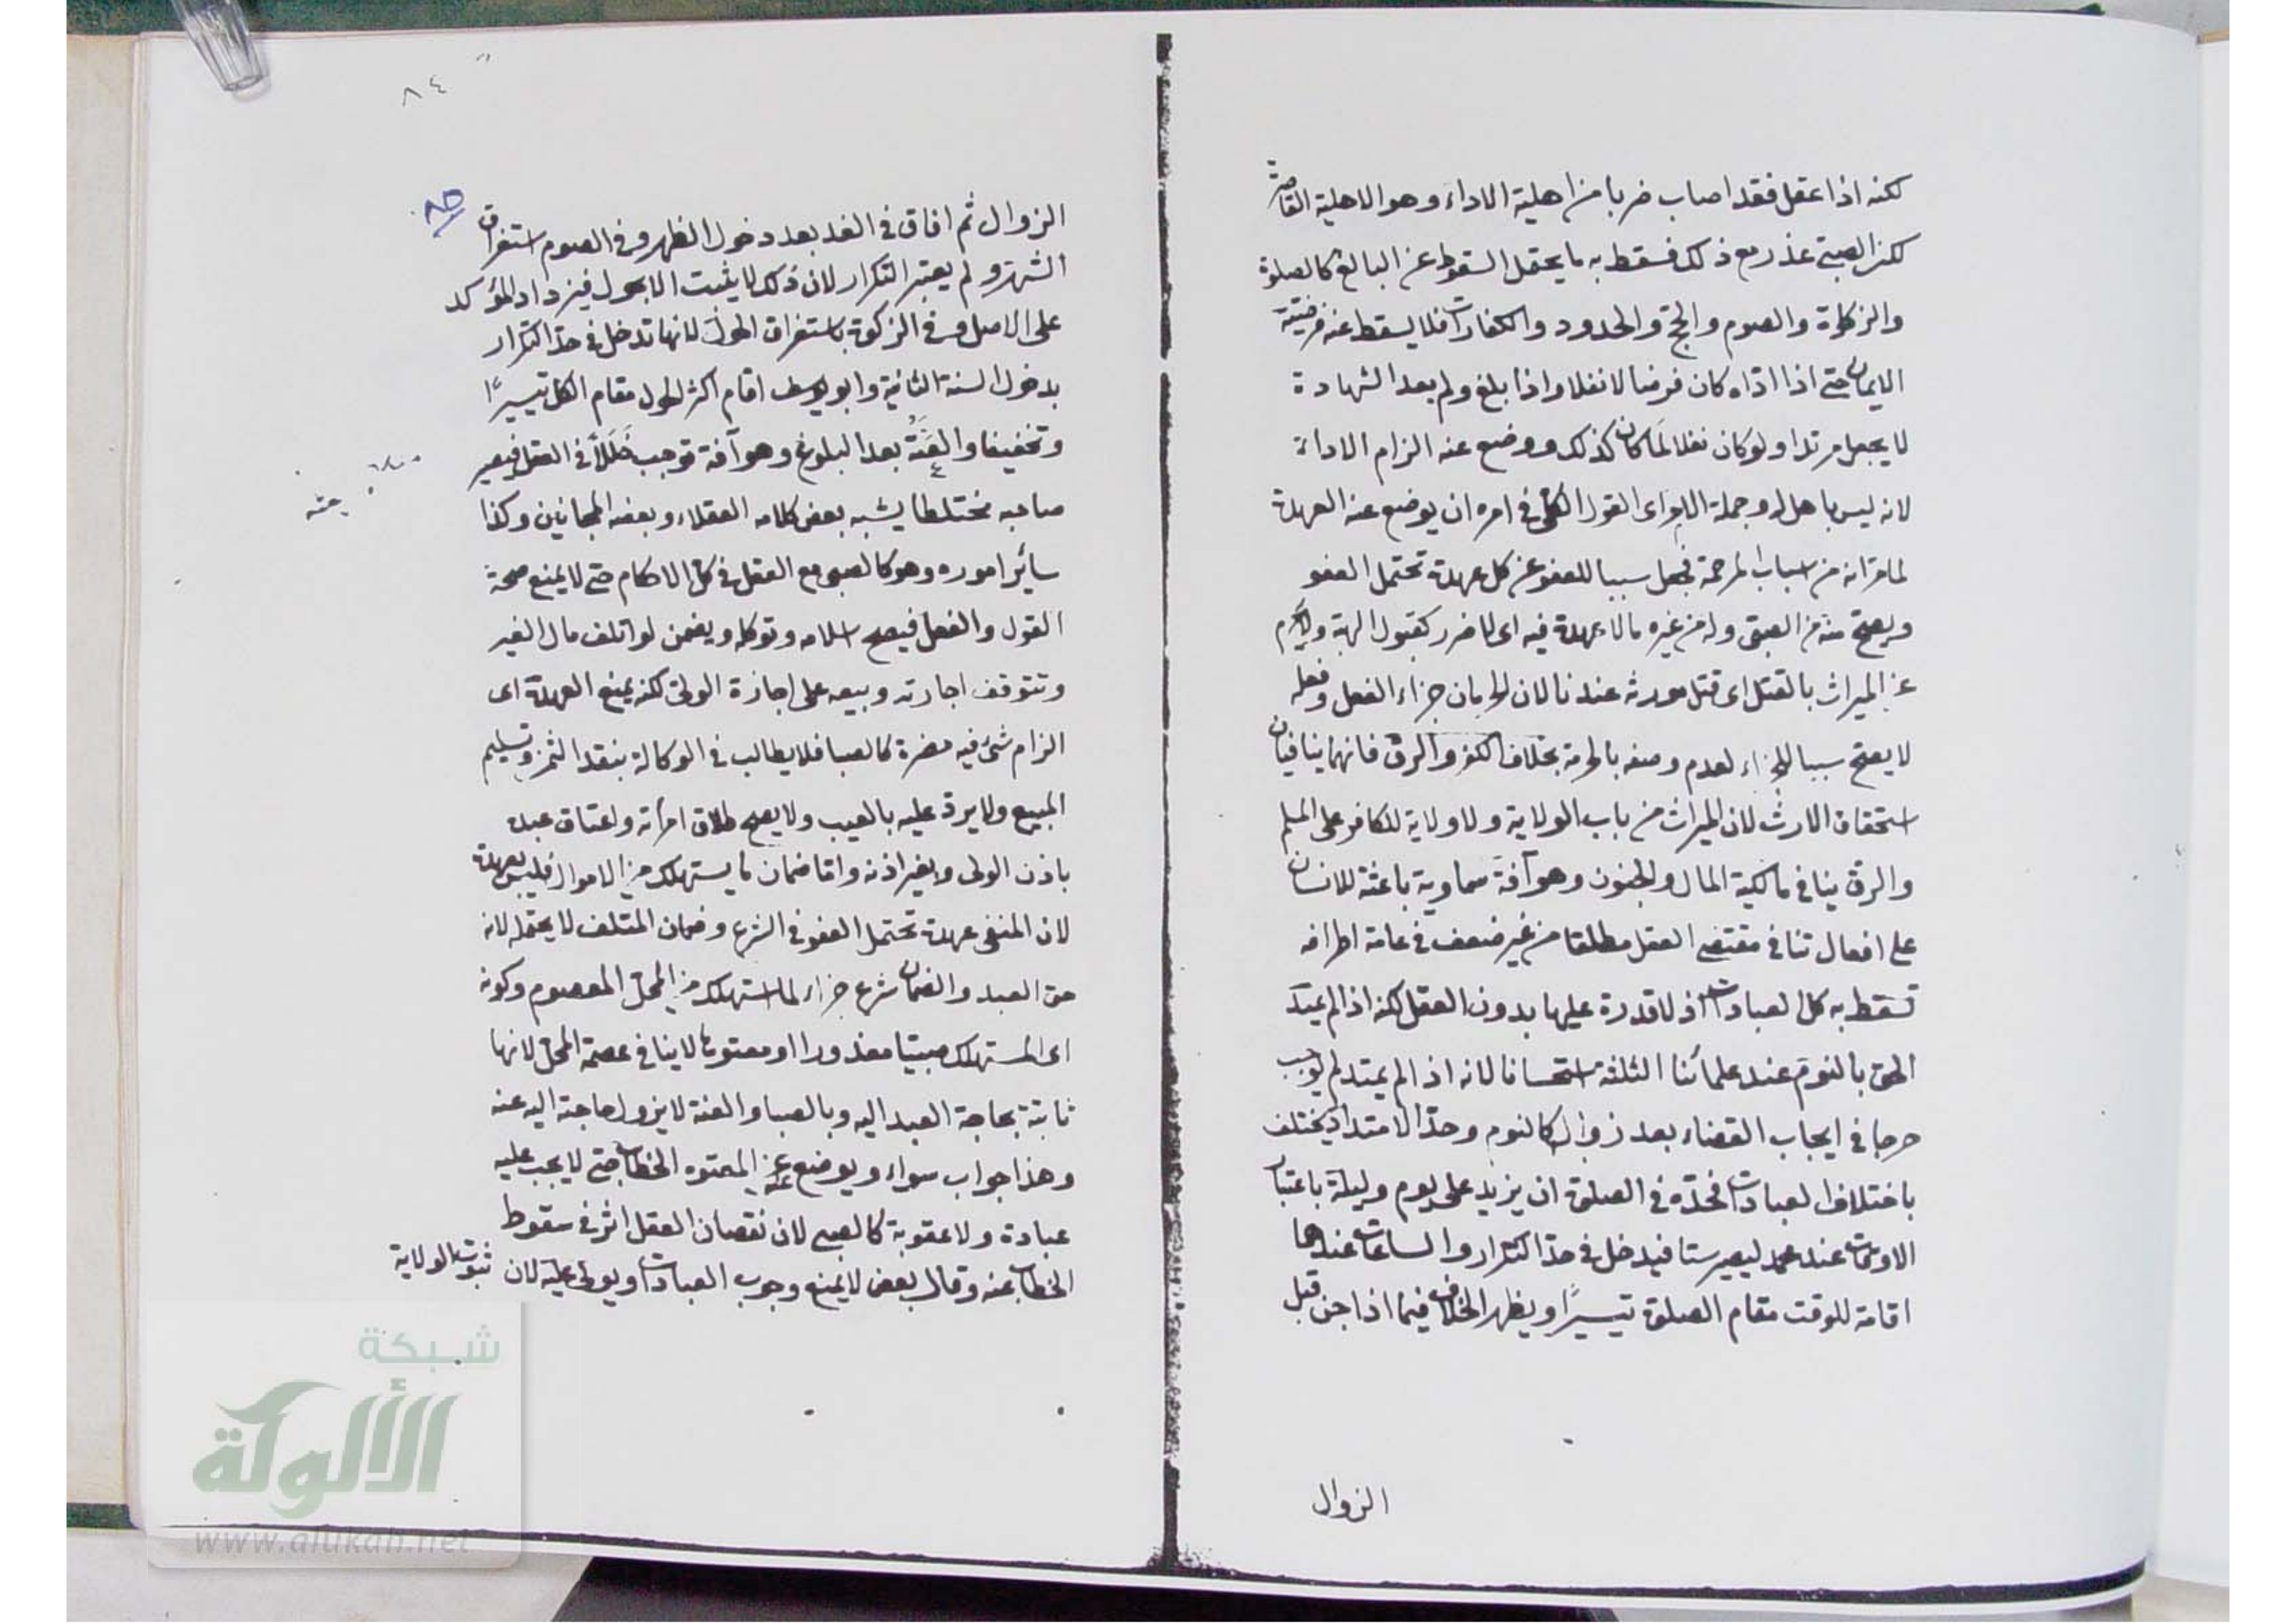 لكنه اذا عقل فقد اصاب ضربا من اهلية الاداء وهو الاهلية القاصرة
لكن الصبى عذر مع ذلك فسقط به ما يحتمل السقوط عن البالغ كالصلوة
والزكاوة والصوم والحج والحدود والكفارات فلا يسقط عنه فرضية
الايمان حتى اذا اداه كان فرضا لا نفلا واذا بلغ ولم يعد الشهادة
لا يجعل مرتدا ولو كان نفلا لما كان كذلك ووضع عنه الزام الاداء
لانه ليس باهل له وجملة الامر اى القول الكلى فى امره ان يوضع عنه العهدة
لما مر انه من اسباب المرحمة فجعل سببا للعفو عن كل عهدة تحتمل العفو
ويصح منه من الصبى وله من غيره ما لا عهدة فيه اى لا ضرر كقبول الهبة ولا يحرم
عن الميراث بالقتل اى قتل مورثه عندنا لان الحرمان جزاء الفعل وفعله
لا يصح سببا للجزاء لعدم وصفه بالحرمة بخلاف الكفر والرق فانهما ينافيان
استحقاق الارث لان الميراث من باب الولاية ولا ولاية للكافر على المسلم
والرق ينافى مالكية المال والجنون وهو آفة سماوية باعثة للانسان
على افعال تنافى مقتضى العقل مطلقا من غير ضعف فى عامة اطرافه
تسقط به كل العبادات اذ لا قدرة عليها بدون العقل لكنه اذا لم يمتد
الحق بالنوم عند علمائنا الثلثة استحسانا لانه اذا لم يمتد لم يوجب
حرجا فى ايجاب القضاء بعد زواله كالنوم وحد الامتداد يختلف
باختلاف العبادات فحده فى الصلوة ان يزيد على يوم وليلة باعتبار
الاوقات عند محمد ليصير ستا فيدخل فى حد التكرار والساعات عندهما
اقامة للوقت مقام الصلوة تيسيرًا ويظهر الخلاف فيما اذا جن قبل
الزوال
٨٤
٨٥
الزوال ثم افاق فى الغد بعد دخول الظهر وفى الصوم استغراق
الشهر ولم يعتبر التكرار لان ذلك لا يثبت الا بحول فيزداد المؤكد
على الاصل وفى الزكوة باستغراق الحول لانها تدخل فى حد التكرار
بدخول السنة الثانية وابو يوسف اقام اكثر الحول مقام الكل تيسيرًا
وتخفيفا والعَتَهُ بعد البلوغ وهو آفة توجب خَلَلًا فى العقل فيصير
صاحبه مختلطا يشبه بعض كلامه العقلاء وبعضه المجانين وكذا
سائر اموره وهو كالصبى مع العقل فى كل الاحكام حتى لا يمنع صحة
القول والفعل فيصح اسلامه وتوكله ويضمن لو اتلف مال الغير
وتتوقف اجارته وبيعه على اجازة الولى لكنه يمنع العهدة اى
الزام شئ فيه مضرة كالصبا فلا يطالب فى الوكالة بنقد الثمن وتسليم
المبيع ولا يرد عليه بالعيب ولا يصح طلاق امرأته واعتاق عبده
باذن الولى وبغير اذنه واما ضمان ما يستهلك من الاموال فليس بعهدة
لان المنفى عهدة تحتمل العفو فى الشرع وضمان المتلف لا يحتمله لانه
حق العبد والضمان شرع جزاء لما استهلك من المحل المعصوم وكونه
اى المستهلك صبيا معذورا او معتوها لا ينافى عصمة المحل لانها
ثابتة بحاجة العبد اليه وبالصبا والعته لا يزول حاجته اليه عنه
وهذا جواب سواء ويوضع عنه عن المعتوه الخطاب حتى لا يجب عليه
عبادة ولا عقوبة كالصبى لان نقصان العقل اثر فى سقوط
الخطاب عنه وقال بعض لا يمنع وجوب العبادات ويولى عليه لان ثبوت الولاية
عته
شبكة
الألوكة
www.alukah.net